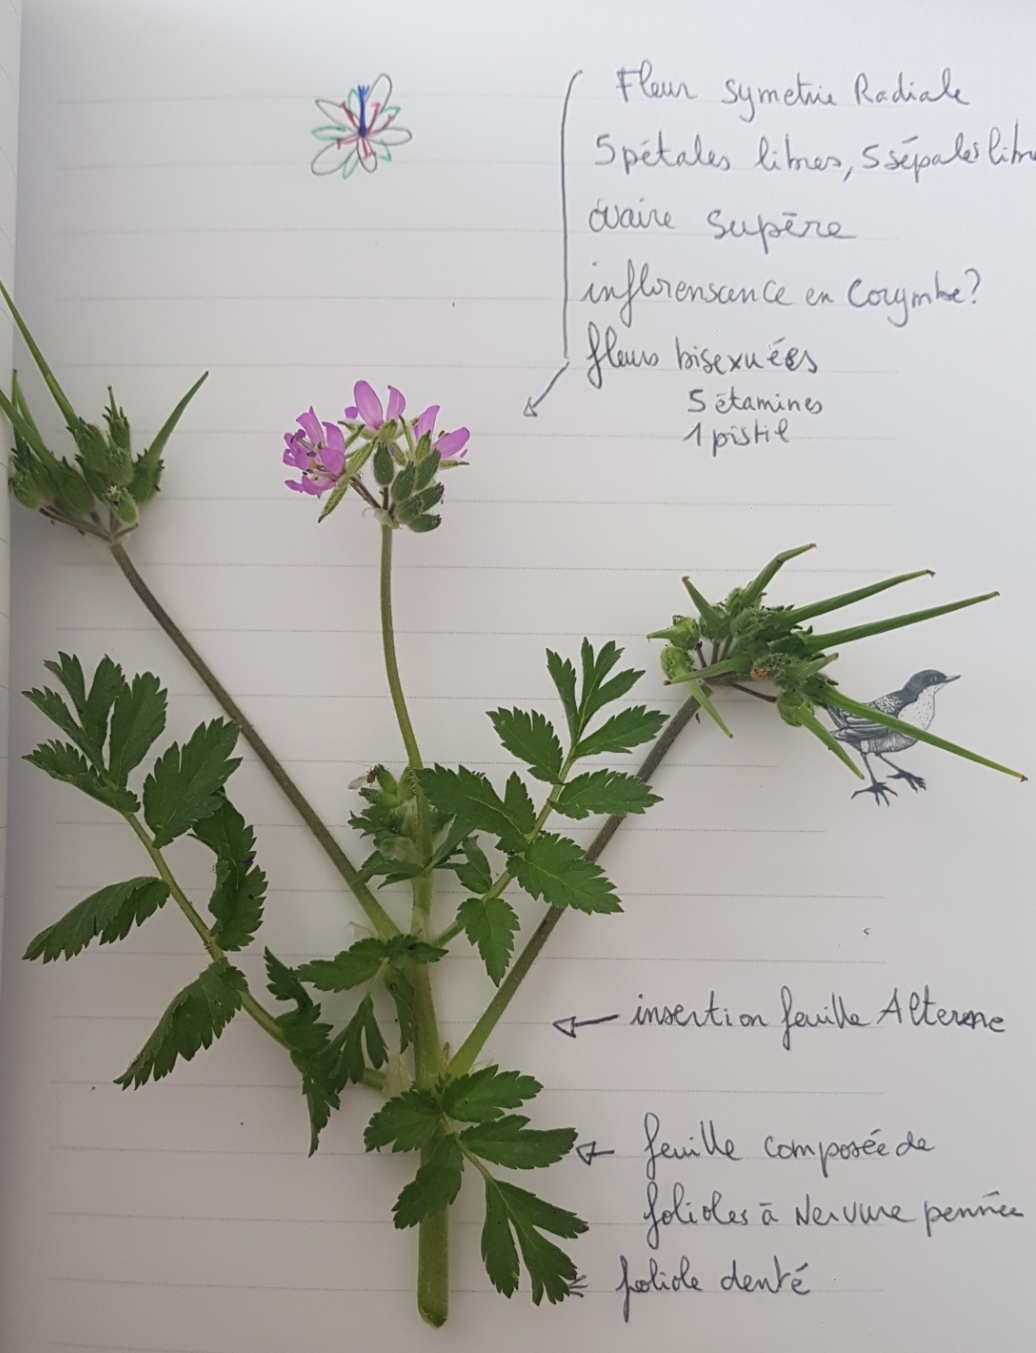 Fleur symetrie Radiale
5 pétales libres, 5 sépales libre
ovaire supère
inflorenscence en Corymbe?
fleurs bisexuées
5 étamines
1 pistil
insertion feuille Alterne
feuille composée de
folioles à Nervure pennée
foliole denté